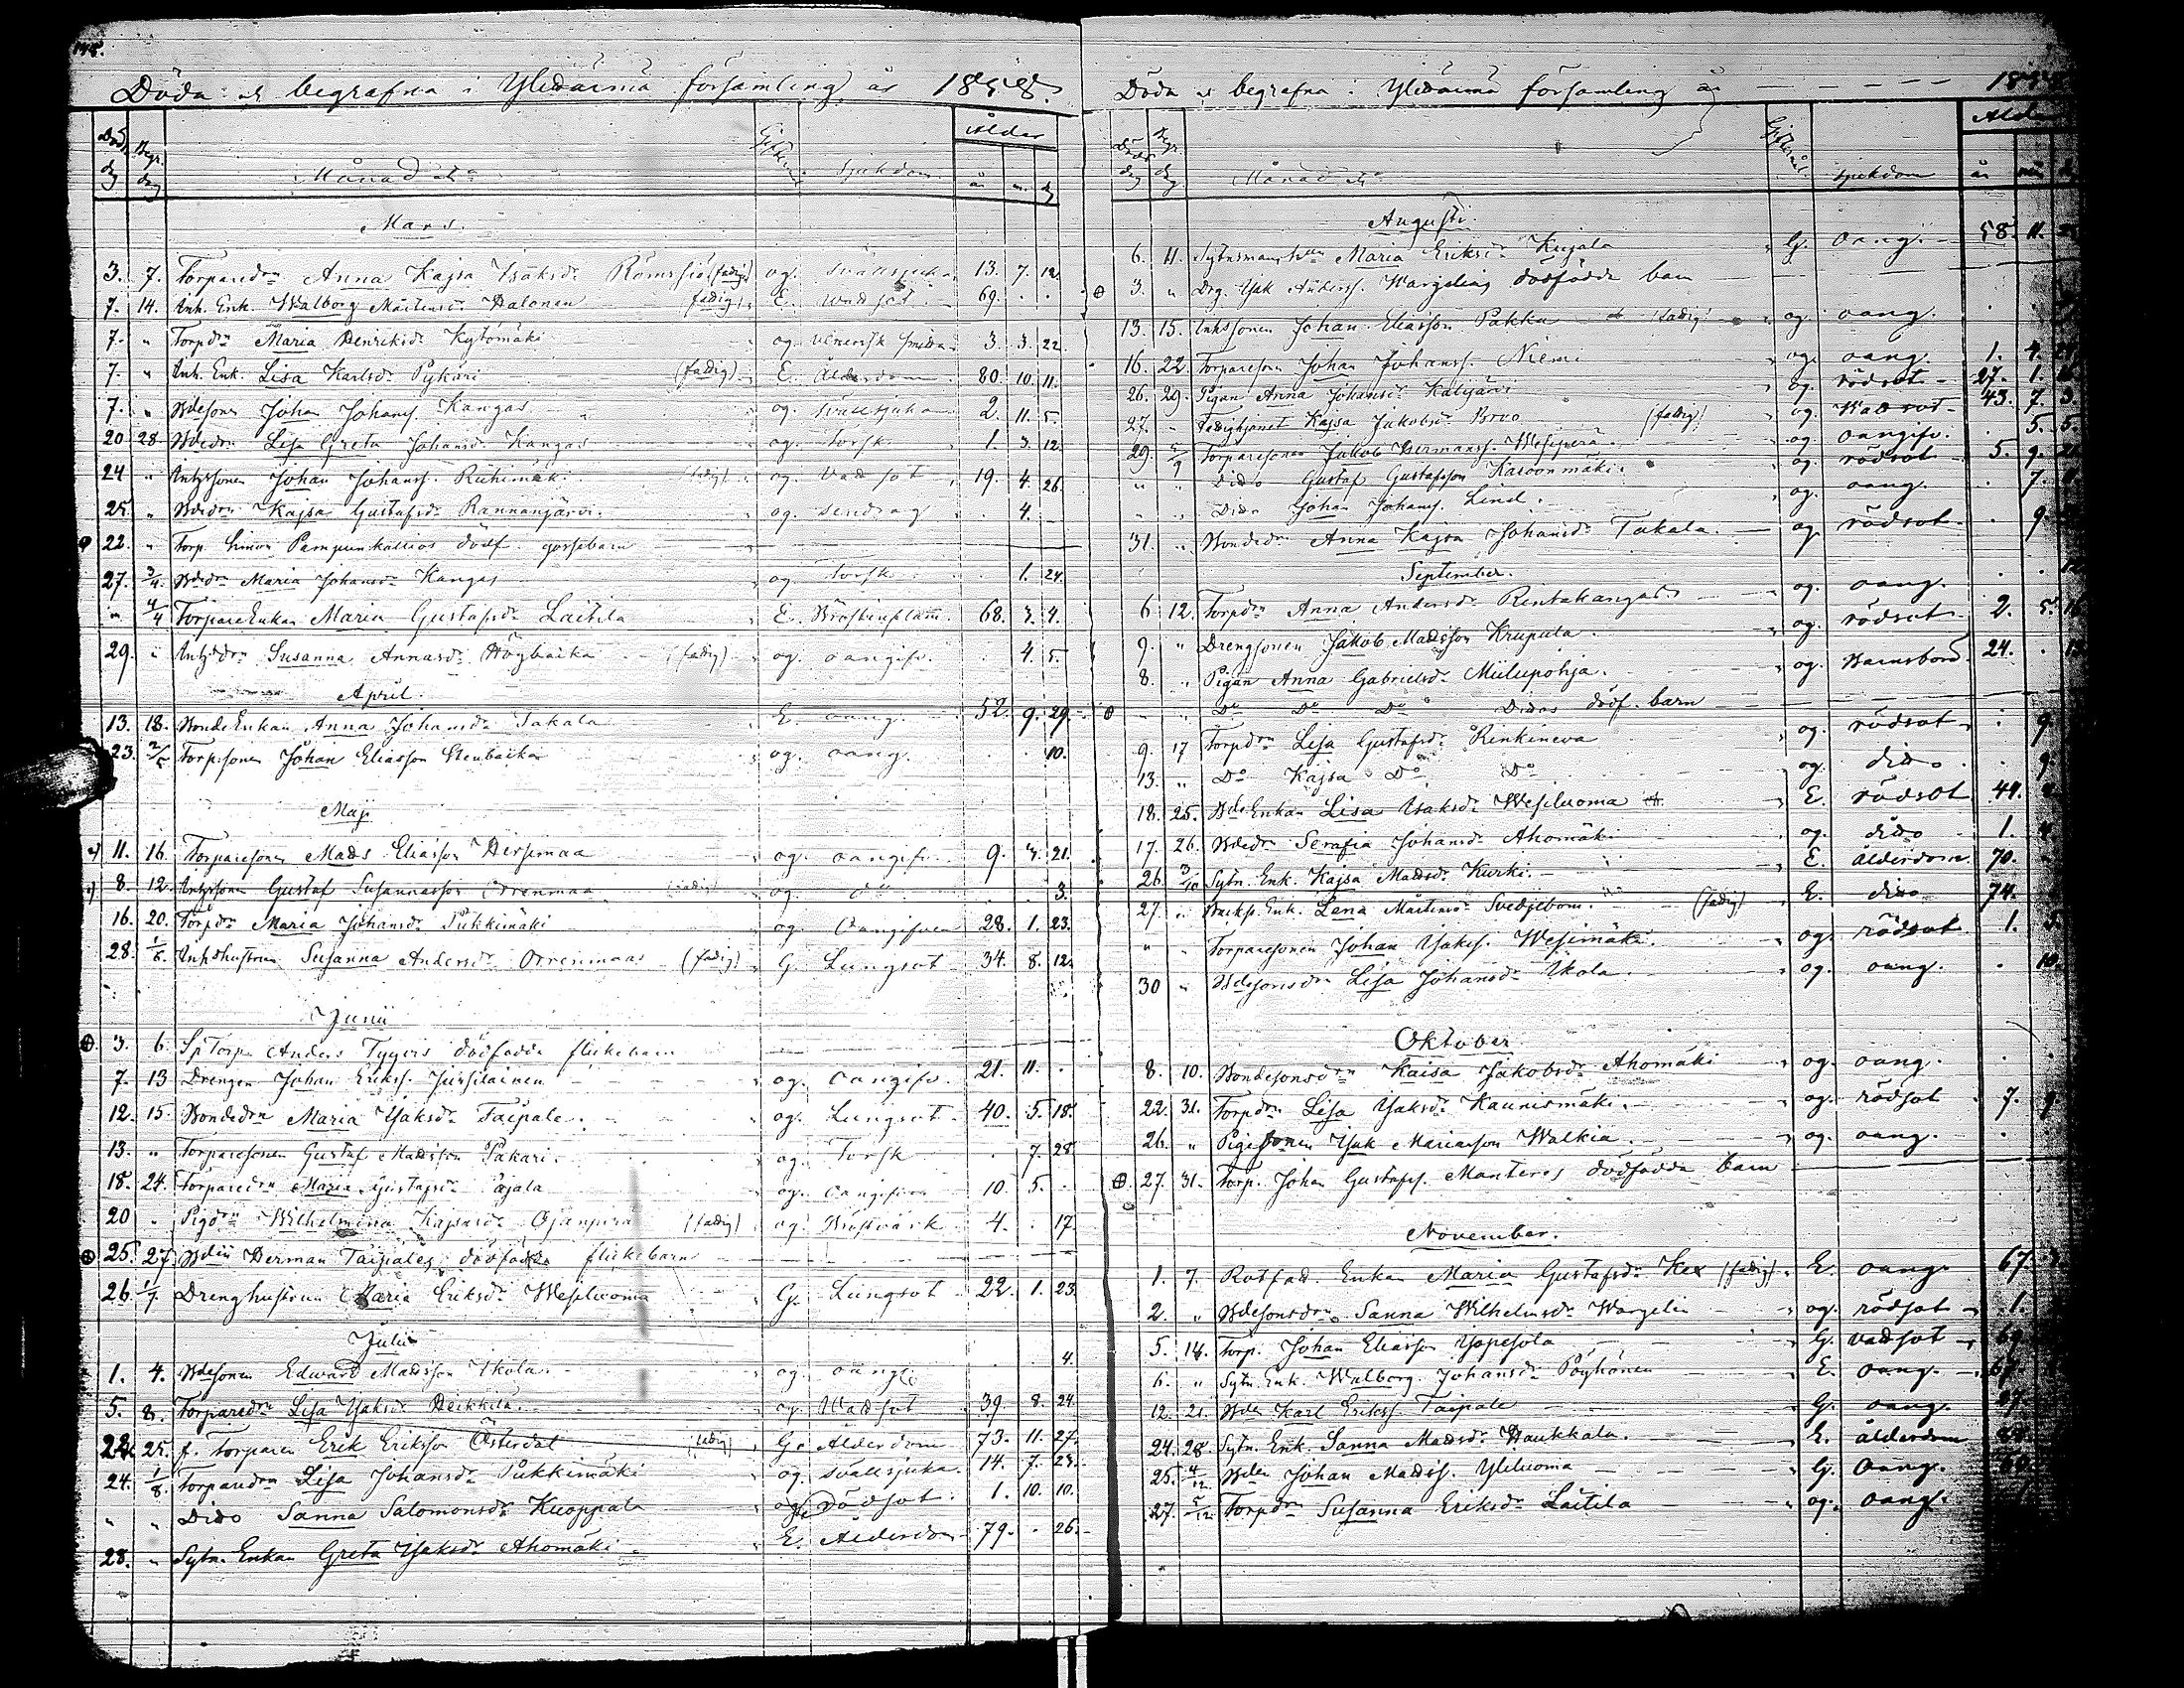 Döda och begrafna i Ylihärmä församling år 1858.
Död. dag Begr. dag Månad etc Giftermål Sjukdom Ålder år m. dg
Mars.
3. 7. Torparedr Anna Kajsa Isaksdr (fattig) og. svällsjuka 13. 7. 12.
7. 14. Inh. Enk. Walborg Mårtensdr Halonen fattig E. vadsot 69. . .
7. " Torpdr Maria Henriksdr Kytömäki og venerisk smitta 3. 3. 22.
7. " Inh. Enk. Lisa Karlsdr Pykäri (fattig) E. Ålderdom 80. 10. 11.
7. " Bdesonen Johan Johans. Kangas og. svällsjuka 2. 11. 5.
20 28. Bdedr Lisa Greta Johansdr Kangas og. torsk 1. 3. 12.
24 " Inhssonen Johan Johans. Riihimäki (fattig) og. vadsot 19. 4. 26.
25. " Bdedr Kajsa Gustafsdr Rannanjärvi og. sendrag . 4. .
22. " Torp. Simon Pampunkallios dödf. gossebarn
27. 3/4. Bdedr Maria Johansdr Kangas og. torsk . 1. 24.
" 4/4 TorpareEnkan Maria Gustafsdr Laitila E. Bröstinflam. 68. 3. 4.
29. " Inhsdr Susanna Annasdr Högbacka (fattig) og. oangifv. . 4. 5.
April.
13. 18. BondeEnkan Anna Johansdr Takala E. oang. 52. 9. 29.
23. 2/5 Torpsonen Johan Eliasson Stenbacka og. oang. . . 10.
Maji
11. 16. Torparesonen Mads Eliasson Hirsimaa og. oangifv. 9. 3. 21.
8. 12. Inhssonen Gustaf Susannasson Orrenmaa (fattig) og do . . 3.
16. 20. Torpdr Maria Johansdr Pukkimäki og. Oangifven 28. 1. 23.
28. 1/6. Inhshustrun Susanna Andersdr Orrenmaa (fattig) G. Lungsot 34. 8. 12.
Junii
3. 6. SpTorp. Anders Tygers dödfödda flickebarn
7. 13 Drengen Johan Eriks. Jussilainen og. oangifv. 21. 11. .
12. 15. Bondedr Maria Isaksdr Taipale. og. Lungsot 40. 5. 18.
13. " Torparesonen Gustaf Madsson Pakari. og. Torsk . 7. 28
18. 24. Torparedr Maria Gustafsdr Pajala og. oangifven 10. 5. .
20 " Pigdr Wilhelmina Kajsasdr Ojanperä (fattig) og Bröstvärk 4. . 17.
25. 27 Bden Herman Taipales dödfödda flickebarn
26. 1/7 Drenghustrun Maria Eriksdr Wesiluoma G. Lungsot 22. 1. 23.
Julii
1. 4. Bdesonen Edward Madsson Ikola. og. oang. . . 4.
5. 8. Torparedr Lisa Isaksdr Heikkilä. og. Vadsot 39. 8. 24.
22. 25. f. Torparen Erik Eriksson Österdal (fattig) G. Ålderdom 73. 11. 27.
24. 1/8. Torparedr Lisa Johansdr Pukkimäki og. svällsjuka. 14. 7. 23.
" " Dido Sanna Salomonsdr Kuoppala og. rödsot. 1. 10. 10.
28. " Sytn. Enkan Greta Isaksdr Ahomäki. E. Ålderdom 79. . 26.
Döda och begrafna i Ylihärmä församling år 1858
Död. dag Begr. dg. Månad etc Giftermål sjukdom Ålder år mån d.
Augusti.
6. 11. Sytnsmanshustrun Maria Eriksdr Kujala G. oang. 58. 11.
3. " Drg. Isak Anderss. Wargelins dödfödda barn
13. 15. Inhssonen Johan Eliasson Pakka fattig og. oang.
16. 22. Torparesonen Johan Johans. Niemi og. oang. 1. 4.
26. 29. Pigan Anna Johansdr Kalijärvi og. rödsot 27. 1.
27. " Fattighjonet Kajsa Jakobsdr Broo (fattig) og. Vadsot 43. 7. 3.
29. 5/9 Torparesonen Jakob Hermans. Wesiperä og. oangifv. . 5. 5.
" " Dido Gustaf Gustafsson Karoonmäki. og. rödsot 5. 9.
" " Dido Johan Johans. Lind. og. oang. . 7.
31. " Bondedr Anna Kajsa Johansdr Takala. og. rödsot . 9.
September.
6 12. Torpdr Anna Andersdr Rintakangas. og. oang.
9. " Drengsonen Jakob Madsson Krupula. og. rödsot 2. 5.
8. " Pigan Anna Gabrielsdr Miilupohja. og. Barnsbörd. 24. .
" Do Do Do Didos dödf. barn
9. 17 Torpdr Lisa Gustafsdr Rinkineva og. rödsot . 9.
13. " Do Kajsa Do Do og. dido . 9.
18. 25. BdeEnkan Lisa Isaksdr Wesiluoma E. rödsot 44.
17. 26. Bdedr Serafia Johansdr Ahomäki og. dido 1. 4.
26. 3/10 Sytn. Enk. Kajsa Madsdr Kurki. E. ålderdom 70.
27. " Enk. Lena Mårtensdr Svedjebom. (fattig) E. dido 74.
" " Torparesonen Johan Isaks. Wesimäki. og. rödsot 1.
30 " Bdesonsdr Lisa Johansdr Ikola. og. oang. . 10.
Oktober
8. 10. Bondesonsdr Kaisa Jakobsdr Ahomäki og. oang.
22. 31. Torpdr Lisa Isaksdr Kaunismäki. og. rödsot 7. 9.
26. " Pigesonen Isak Mariasson Walkia. og. oang.
27. 31. Torp. Johan Gustafs. Manteres dödfödda barn
November.
1. 7. Rotfat. Enkan Maria Gustafsdr Kex (fattig) E. oang. 67.
2. " Bdesonsdr Sanna Wilhelmsdr Wargelin og. rödsot 1.
5. 14. Torp. Johan Eliasson Yopesola G. vadsot 69
6. " Sytn. Enk. Walborg Johansdr Pöyhönen E. oang. 67.
12. 21. Bden Karl Eriks. Taipale G. oang.
24. 28. Sytn. Enk. Sanna Madsdr Haukkala. E. ålderdom
25. 4/12. Bden Johan Madss. Yliluoma G. Oang.
27. 5/12. Torpdr Susanna Eriksdr Laitila og. oang.